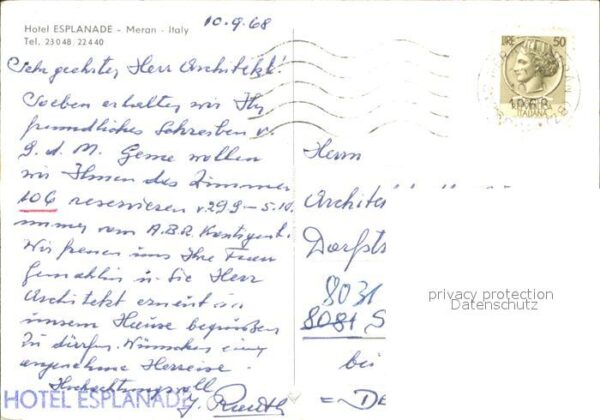 Hotel ESPLANADE - Meran - Italy
Tel. 23048 22440
10.9.68
Sehr geehrter Herr Architekt!
Soeben erhalten wir Ihr
freundliches Schreiben v.
9. d. M. Gerne wollen
wir Ihnen das Zimmer
106 reservieren v. 29.9 – 5.10.
immer vom A.B.R. Kontigent.
Wir freuen uns Ihre Frau
Gemahlin u. Sie Herr
Architekt erneut in
unsem Hause begrüßen
zu dürfen. Wünschen eine
angenehme Herreise
Hochachtungsvoll
HOTEL ESPLANADE
LIRE 50
ITALIANA
1968
Herrn
Archite
Dorfst
8031
8081 S
bei
= De
privacy protection
Datenschutz